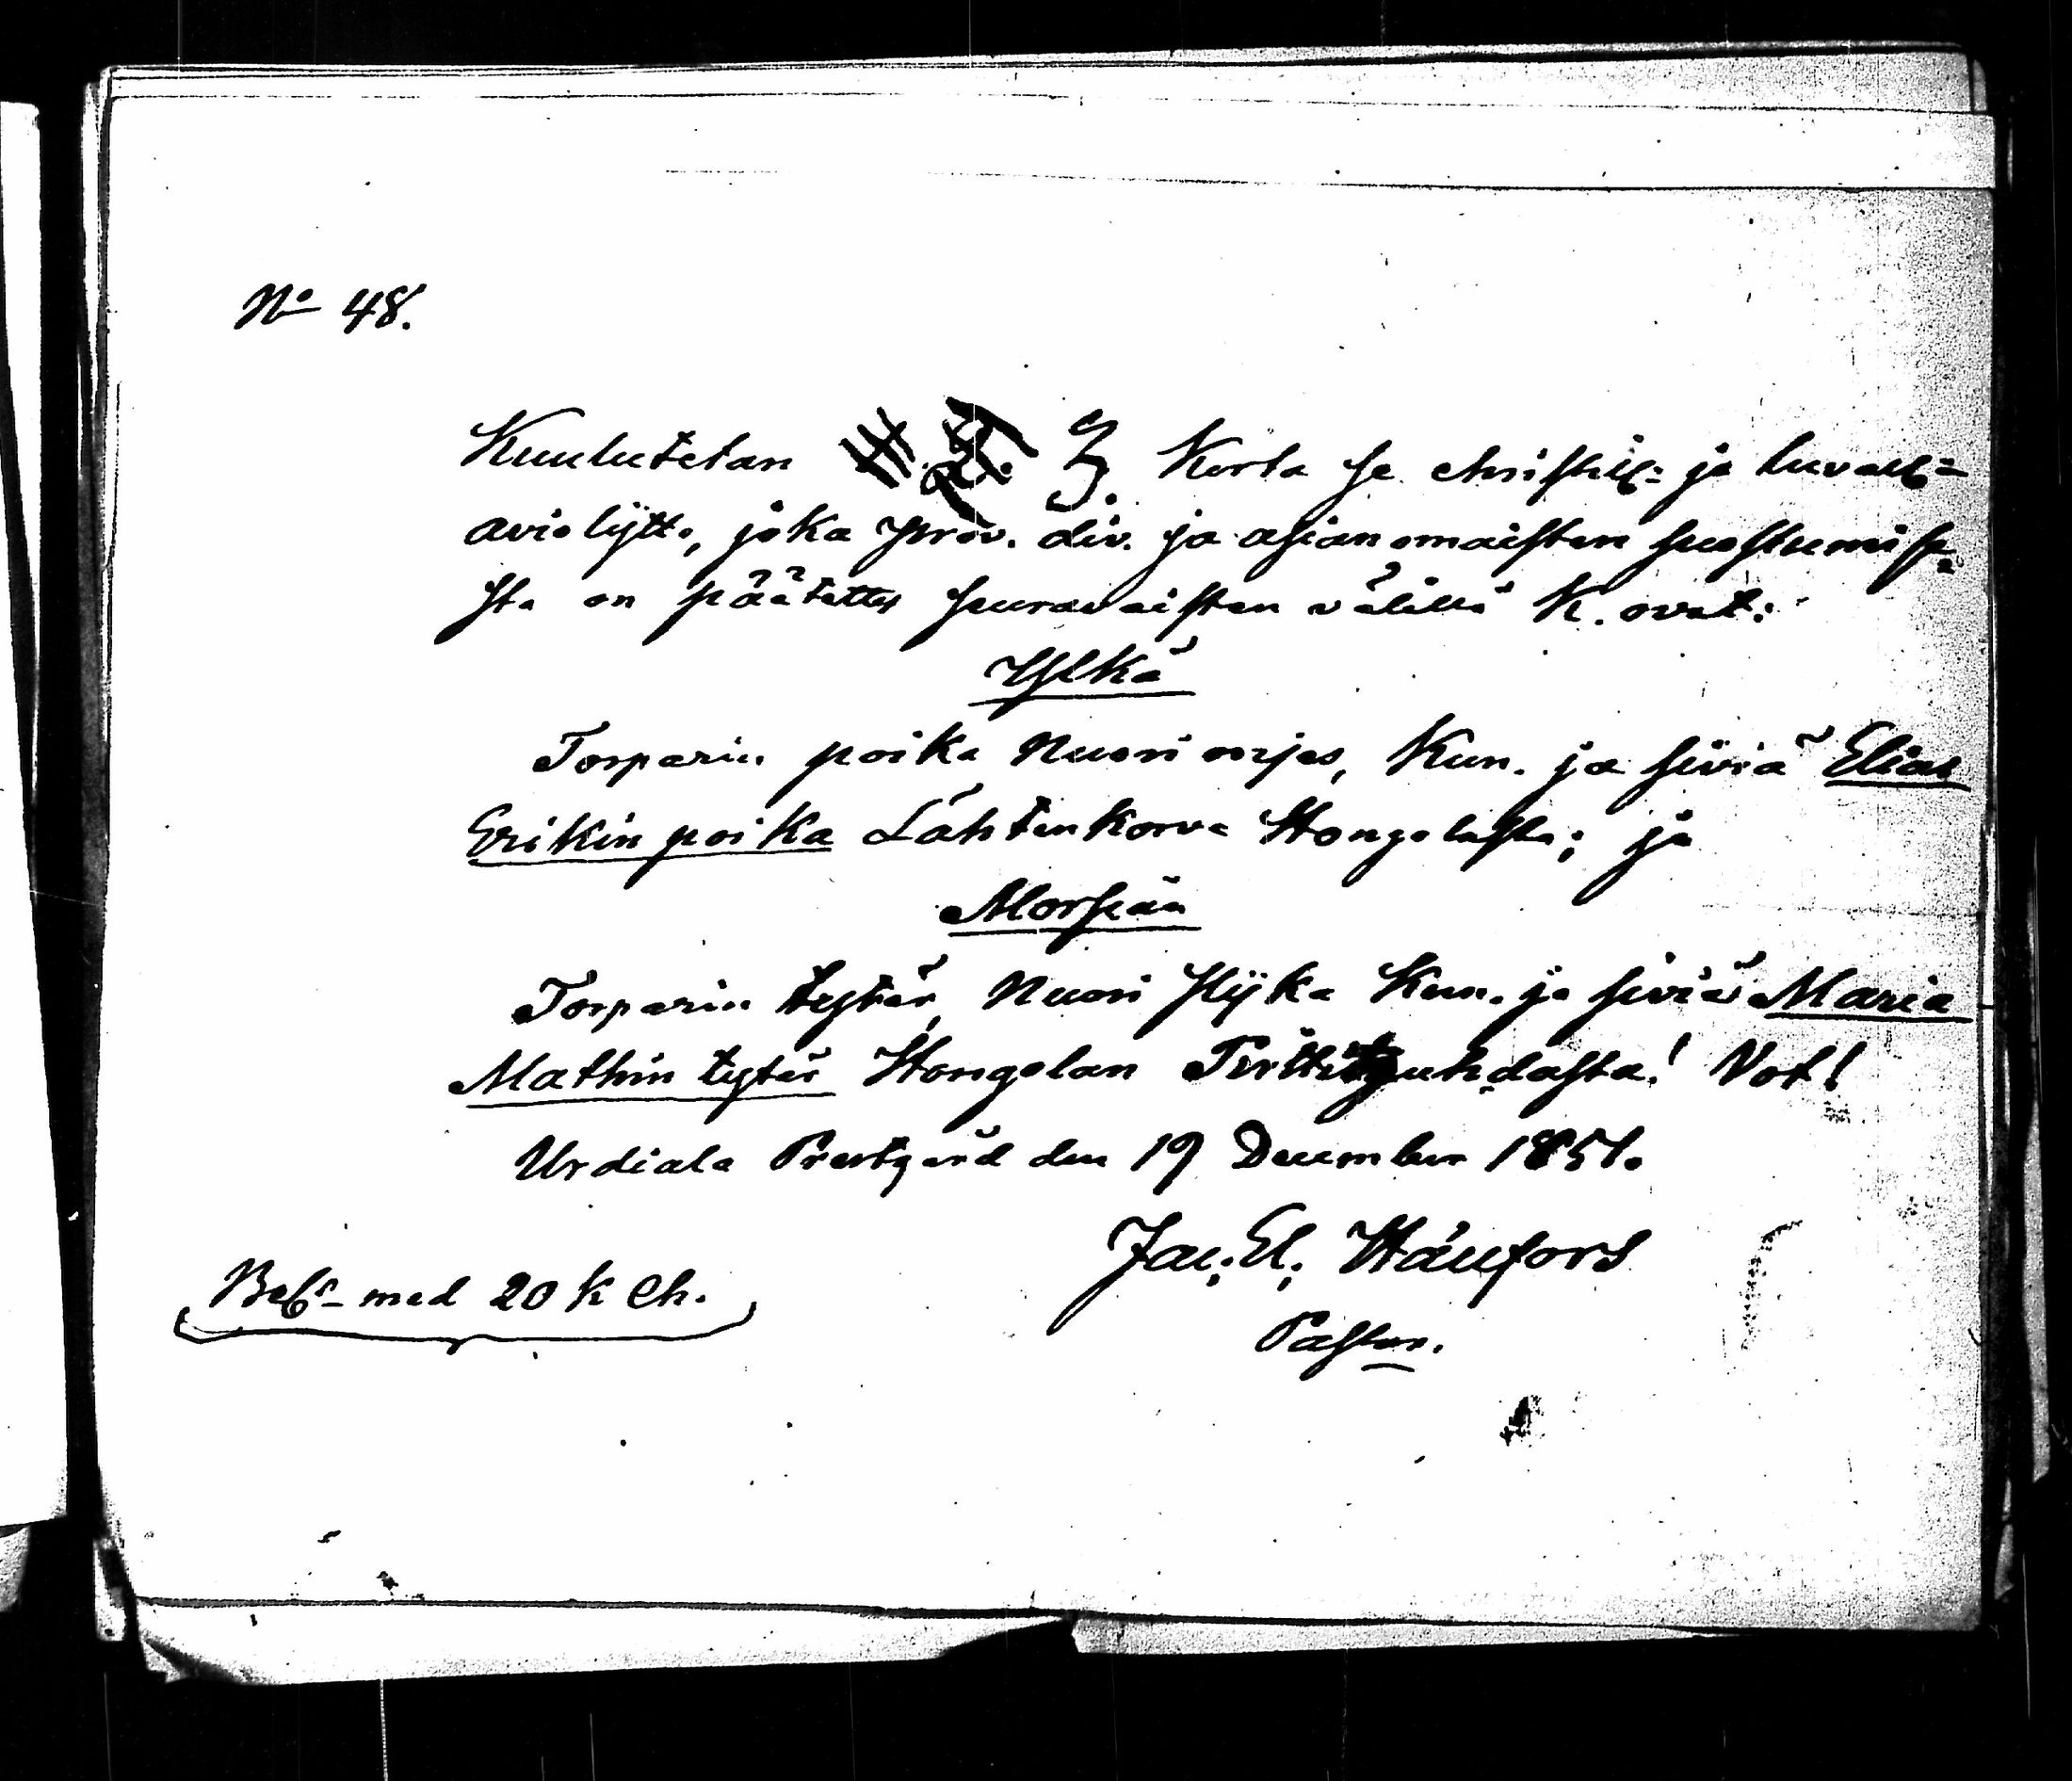 No 48.
Kuulutetan 3. Kerta se christill: ja luvall=
aviolijtto, joka prov. div. ja asianomaisten suostumise
sta on päätetty seuravaisten välillä K. ovat:
Ylkä
Torparin poika Nuori mies, Kun. ja siviä Elias
Erikin poika Lähtenkorva Hongolasta; ja
Morsian
Torparin tytär, Nuori Pijka Kun. ja siviä Maria
Mathin tytär Hongolan! Vot!
Urdiala Prestgård den 19 December 1851.
Jac. El.
med 20 k Ch.
Pastor.